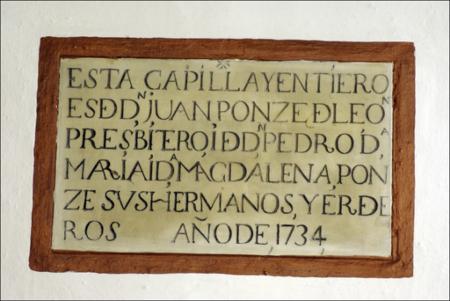 ESTA CAPILLA Y ENTIERO
ES D D.N JUAN PONZE D LEON
PRESBITERO, I D D.N PEDRO, D.A
MARIA, I D.A MAGDALENA, PON
ZE SUS HERMANOS, Y ERDE
ROS AÑO DE 1734